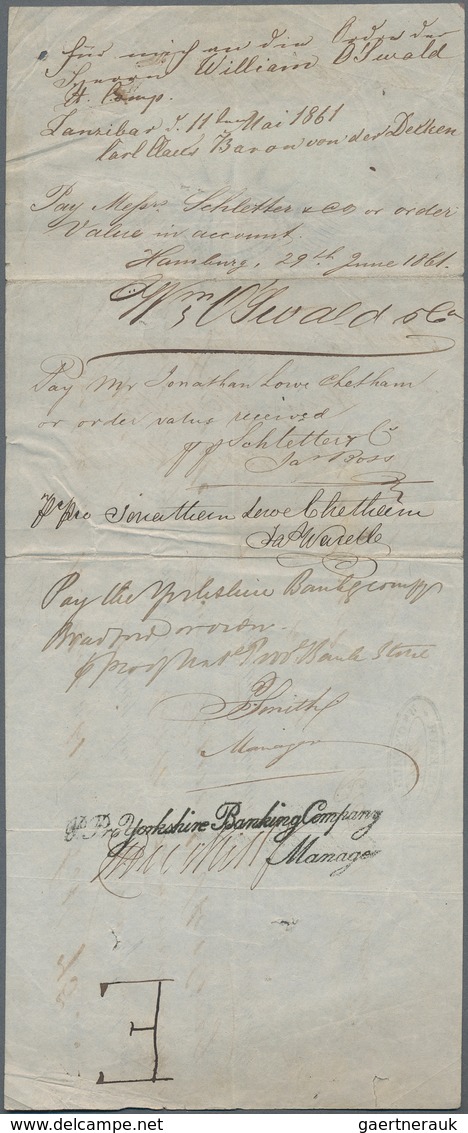 für mich an die Order der
Herrn William O'Swald
& Comp.
Zanzibar d. 11ten Mai 1861
Karl Claus Baron von der Decken
Pay Messrs. Schletter & Co or order
Value in account.
Hamburg, 29th June 1861.
Wm O'Swald & Co
Pay Mr Jonathan Lowe Chetham
or order value received
pp Schletter & Co
Jas Ross
Pr Pro Jonathan Lowe Chetham
Jas
Pay the Yorkshire Banking Compy
Bradford or order
p pro Bank
Smith
Manager
Pr. Pro Yorkshire Banking Company
Manager
E
delcampe.net
gaertnerauk